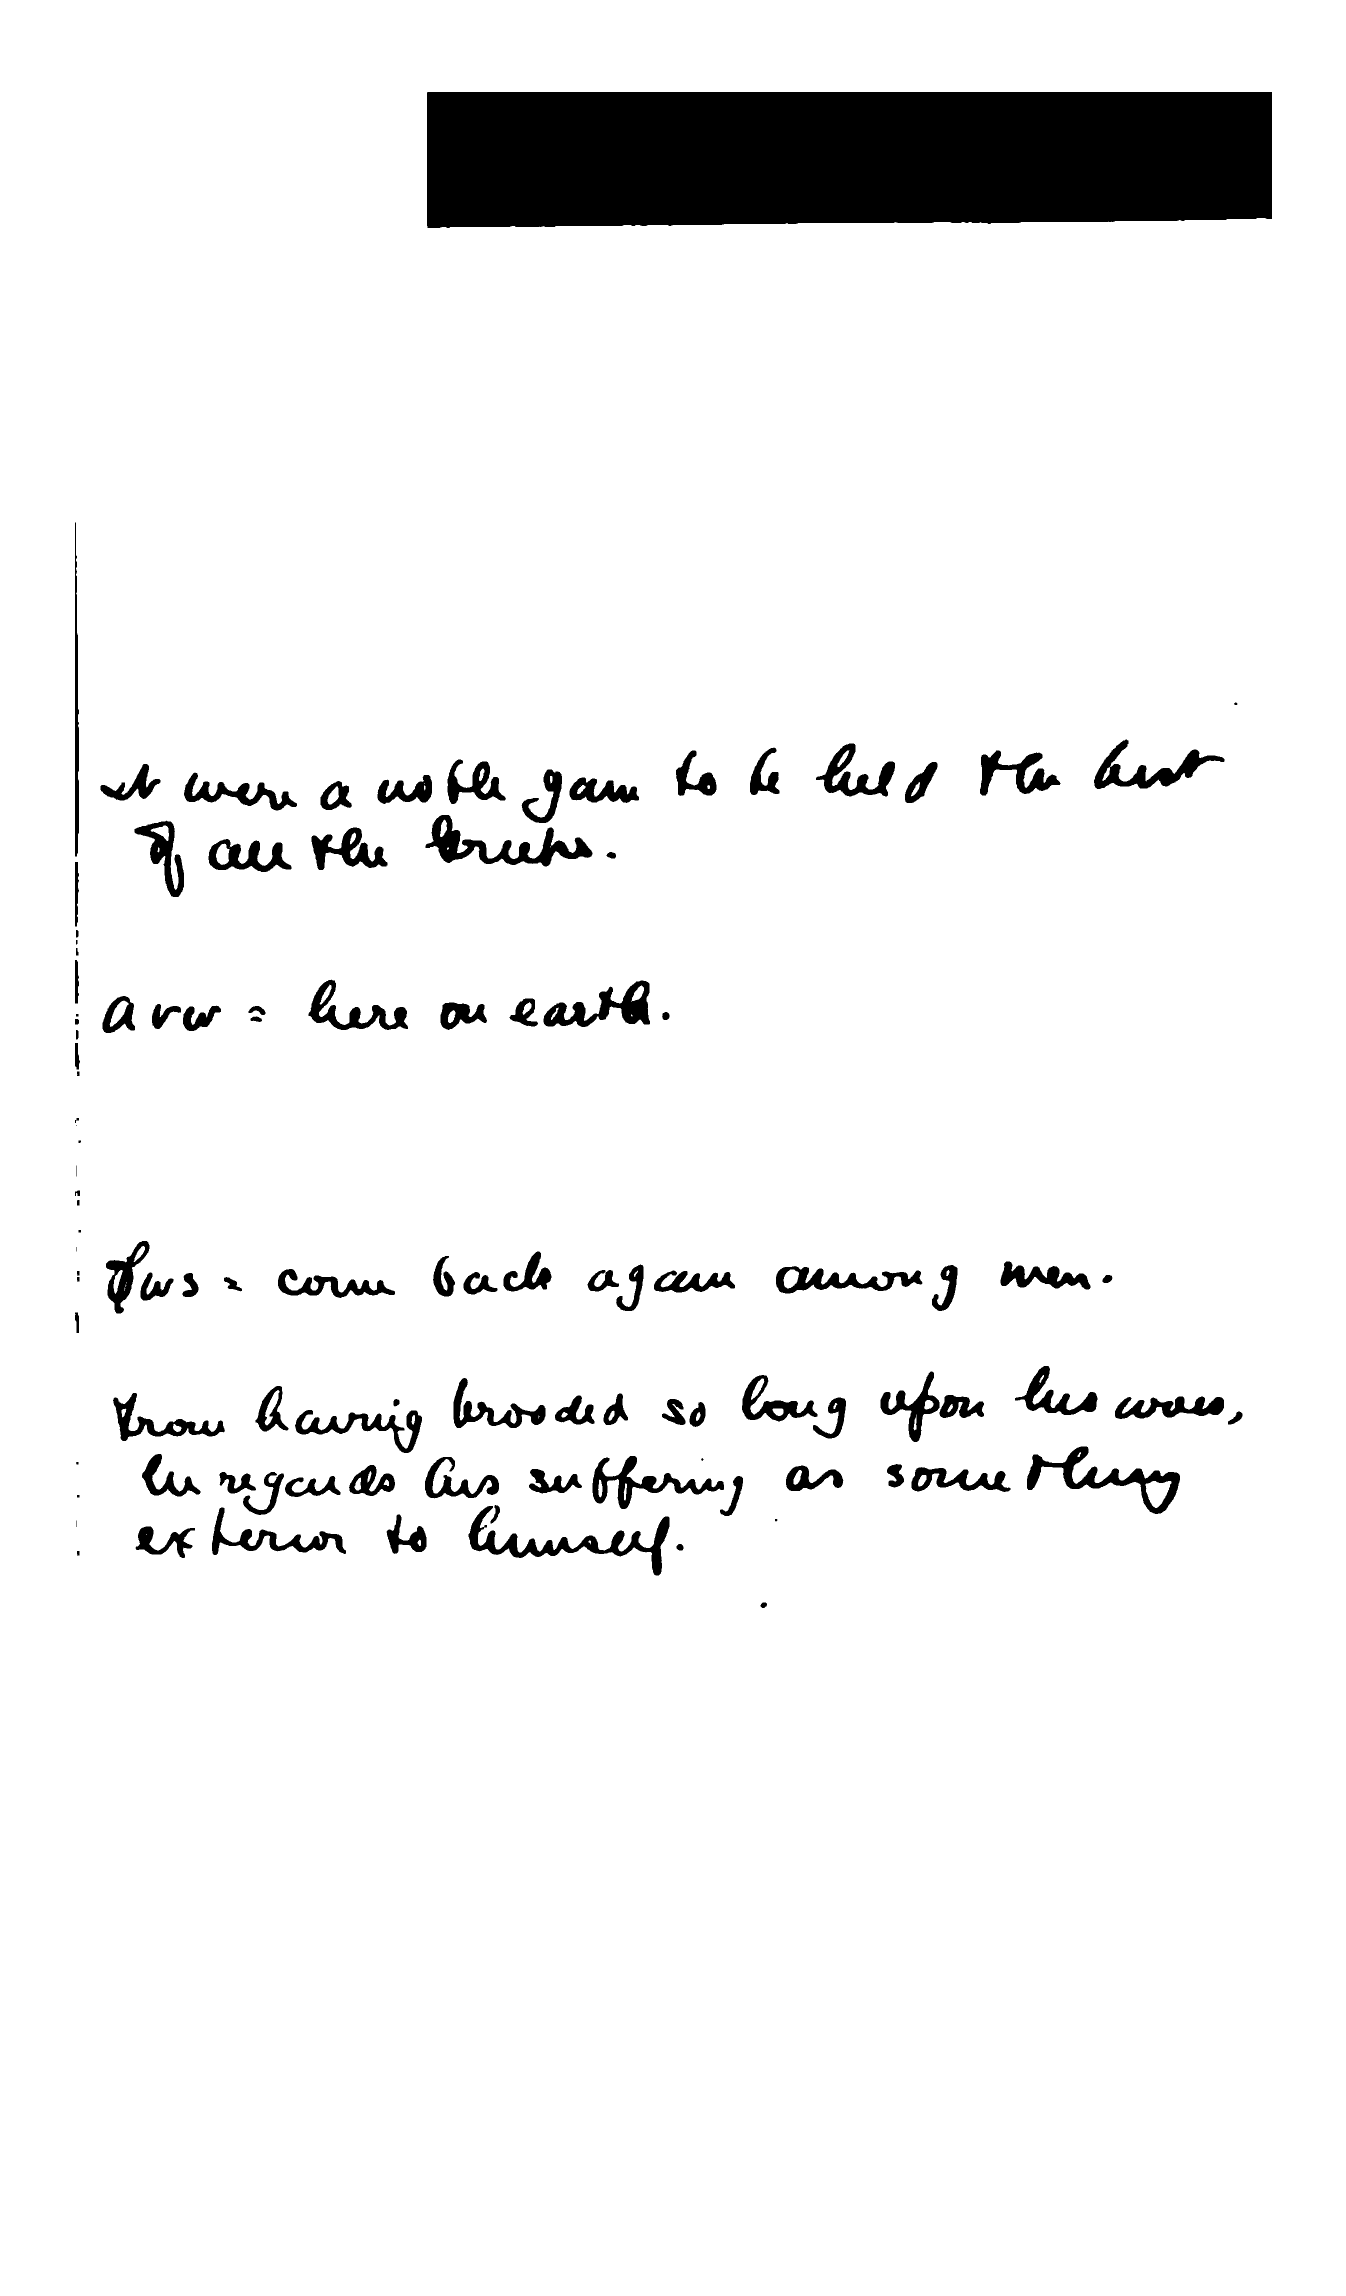 It were a noble gain to be held the best
of all the Greeks.
ανω = here on earth.
φως = come back again among men.
From having brooded so long upon his woes,
he regards his suffering as something
exterior to himself.